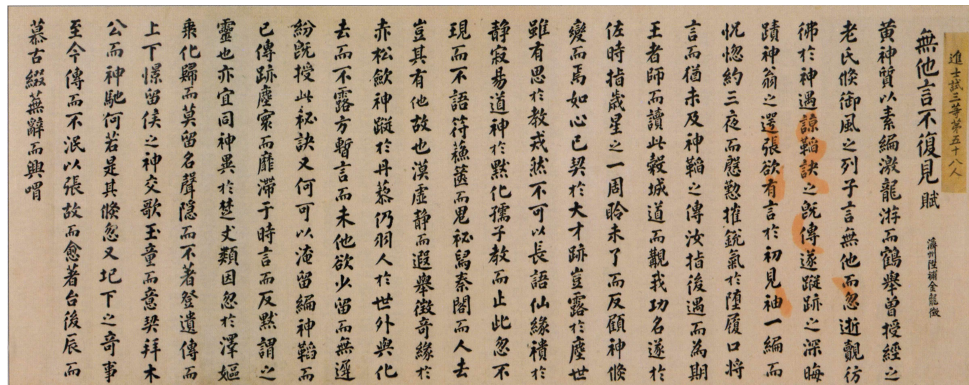 進士試三等第五十八人
無他言不復見賦
藩州陞補金龍徵
黃神質以素編激龍游而鶴擧曾授經之
老氏倏御風之列子言無他而忽逝觀彷
彿於神遇諒韜訣之旣傳遂蹤跡之深晦
蹟神翁之還張欲有言於初見袖一編而
怳惚約三夜而慇懃摧銳氣於堕履口將
言而猶未及神韜之傳汝指後遇而為期
王者師而讀此穀城道而觀我功名遂於
佐時指歲星之一周聆未了而反顧神倏
變而焉如心已契於大才跡豈露於塵世
雖有思於教戎然不可以長語仙緣積於
静寂易道神於黙化孺子教而止此忽不
現而不語符蘊箧而畀秘舄秦閣而人去
豈其有他故也漠虛静而遐擧徵奇緣於
赤松歛神蹤於丹慕仍羽人於世外與化
去而不露方暫言而未他欲少留而無遝
紛旣授此秘訣又何可以淹留編神韜而
已傳跡塵寰而靡滯于時言而反黙謂之
靈也亦宜同神異於楚丈類因忽於澤嫗
乘化歸而莫留名聲隱而不著登遺傳而
上下憬留侯之神交歌玉童而意契拜木
公而神馳何若是其倏忽又圯下之奇事
至今傳而不泯以張故而愈著台後辰而
慕古綴蕪辭而興喟